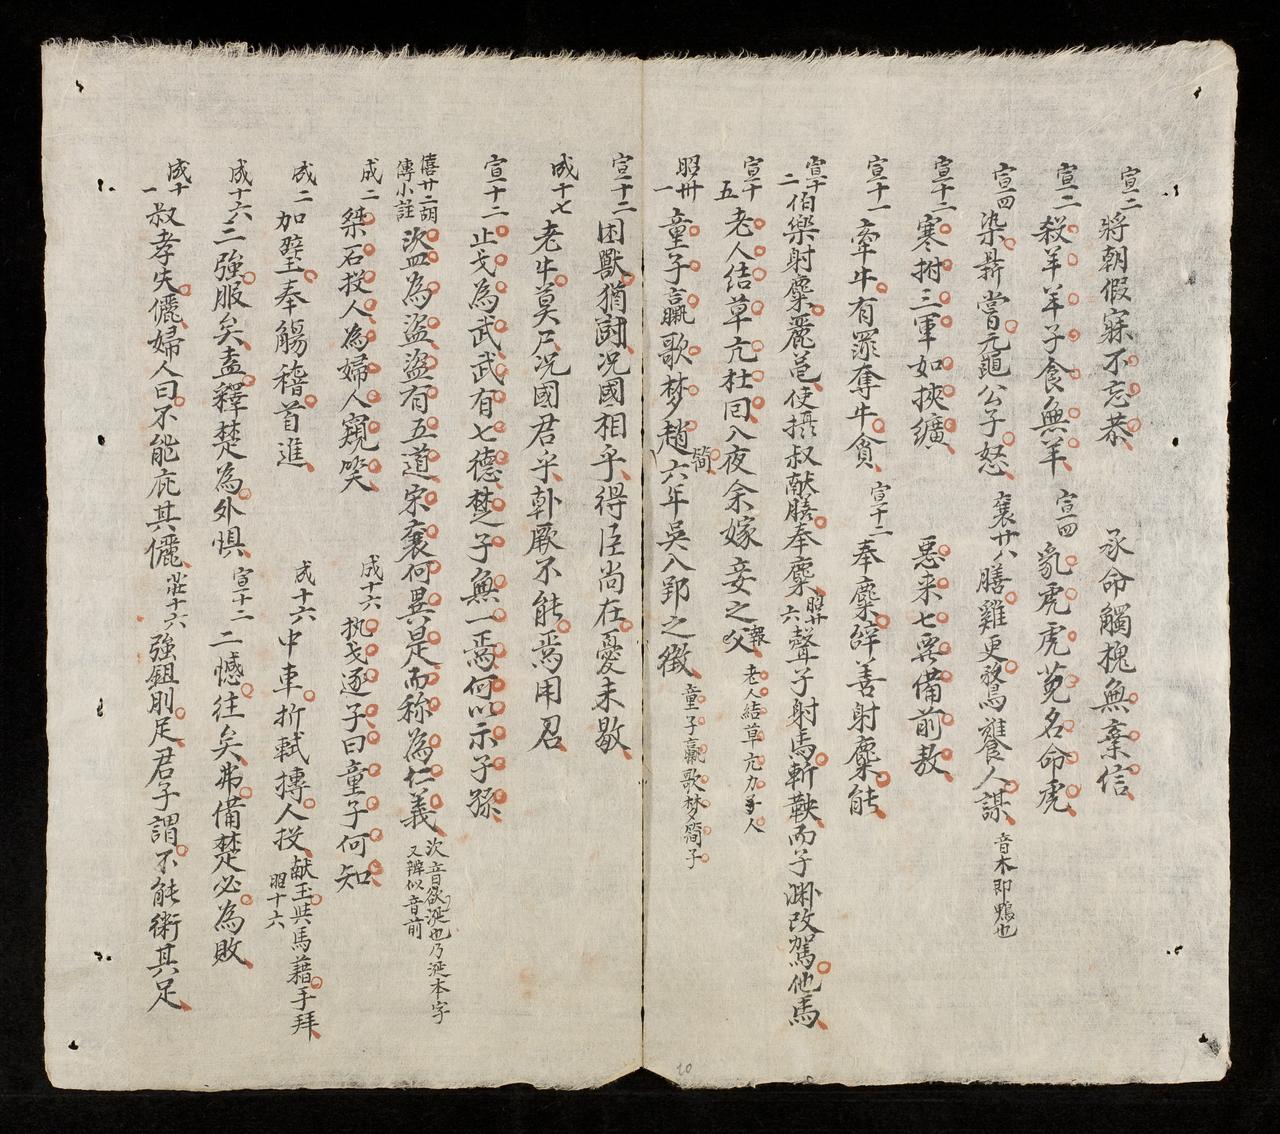 宣二 將朝假寐不忘恭 承命觸槐無棄信
宣二 殺羊羊子食無羊 宣四 乳虎虎菟名命虎
宣四 染鼎嘗元黿公子怒 襄廿八 膳雞更鶩饔人謀 音木即鴨也
宣十二 寒拊三軍如挾纊 惡来七㒵備前敖
宣十一 牽牛有罪奪牛貪 宣十二 奉麋辞善射麋能
宣十二 伯樂射麋麗菴使摂叔献膳奉麋 昭廿六 聲子射馬斬鞅而子淵改駕他馬
宣十五 老人结草亢杜回入夜余嫁妾之父報 老人結草亢力多人
昭卅一 童子臝歌梦趙簡六年吳入郢之徵 童子臝歌梦簡子
宣十二 困獸猶鬪况國相乎得臣尚在憂未歇
成十七 老牛莫尸况國君乎韩厥不能焉用召
宣十二 止戈為武武有七德楚子無一焉何以示子孫
僖廿二胡傳小註 㳄皿為盜盜有五道宋襄何異是而称為仁義 㳄音欲涎也乃涎本字又辨似音前
成二 桀石投人為婦人窺笑 成十六 执戈逐子曰童子何知
成二 加璧奉觴稽首進 成十六 中車折軾摶人投 献玉共馬藉手拜 昭十六
成十六 二強服矣盍釋楚為外惧 宣十二 二憾往矣弗備楚必為敗
成十一 叔孝失儷婦人曰不能庇其儷 庄十六 強鉏刖足君子謂不能術其足
20